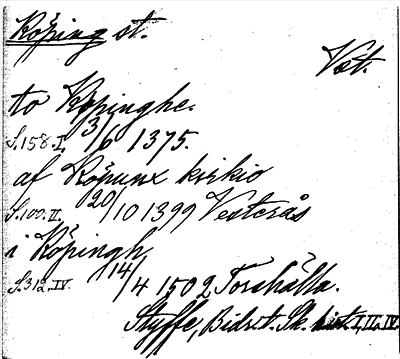 Köping st.
Vst.
to Köpinghe.
S.158.I. 3/6 1375.
af Köpunx kirkio
S.109.II. 20/10 1399 Vesterås
i Köpingh
S.312.IV. 14/4 1502 Torshälla.
Styffe, Bidrt. Sk. hist. I, II, IV.